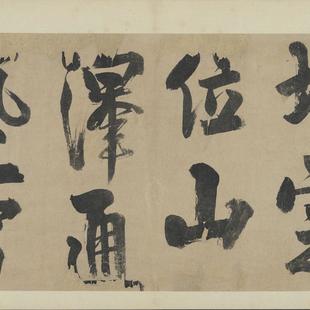 地定
位山
澤通